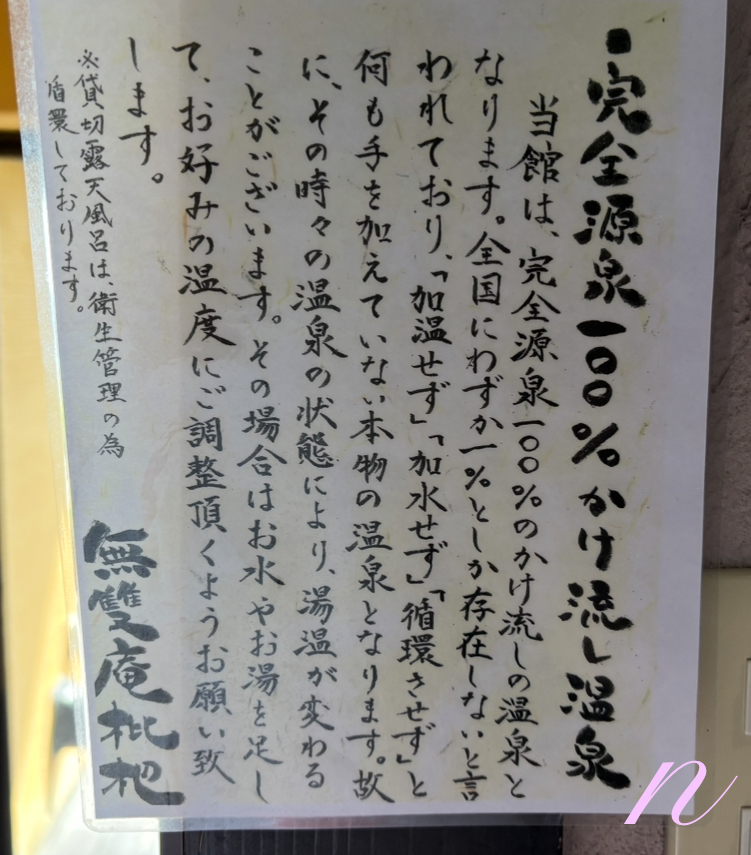 ・完全源泉一〇〇%かけ流し温泉
当館は、完全源泉一〇〇%のかけ流しの温泉と
なります。全国にわずか一%としか存在しないと言
われており、「加温せず」「加水せず」「循環させず」と
何も手を加えていない本物の温泉となります。故
に、その時々の温泉の状態により、湯温が変わる
ことがございます。その場合はお水やお湯を足し
て、お好みの温度にご調整頂くようお願い致
します。
※貸切露天風呂は、衛生管理の為
循環しております。
無雙庵枇杷
n